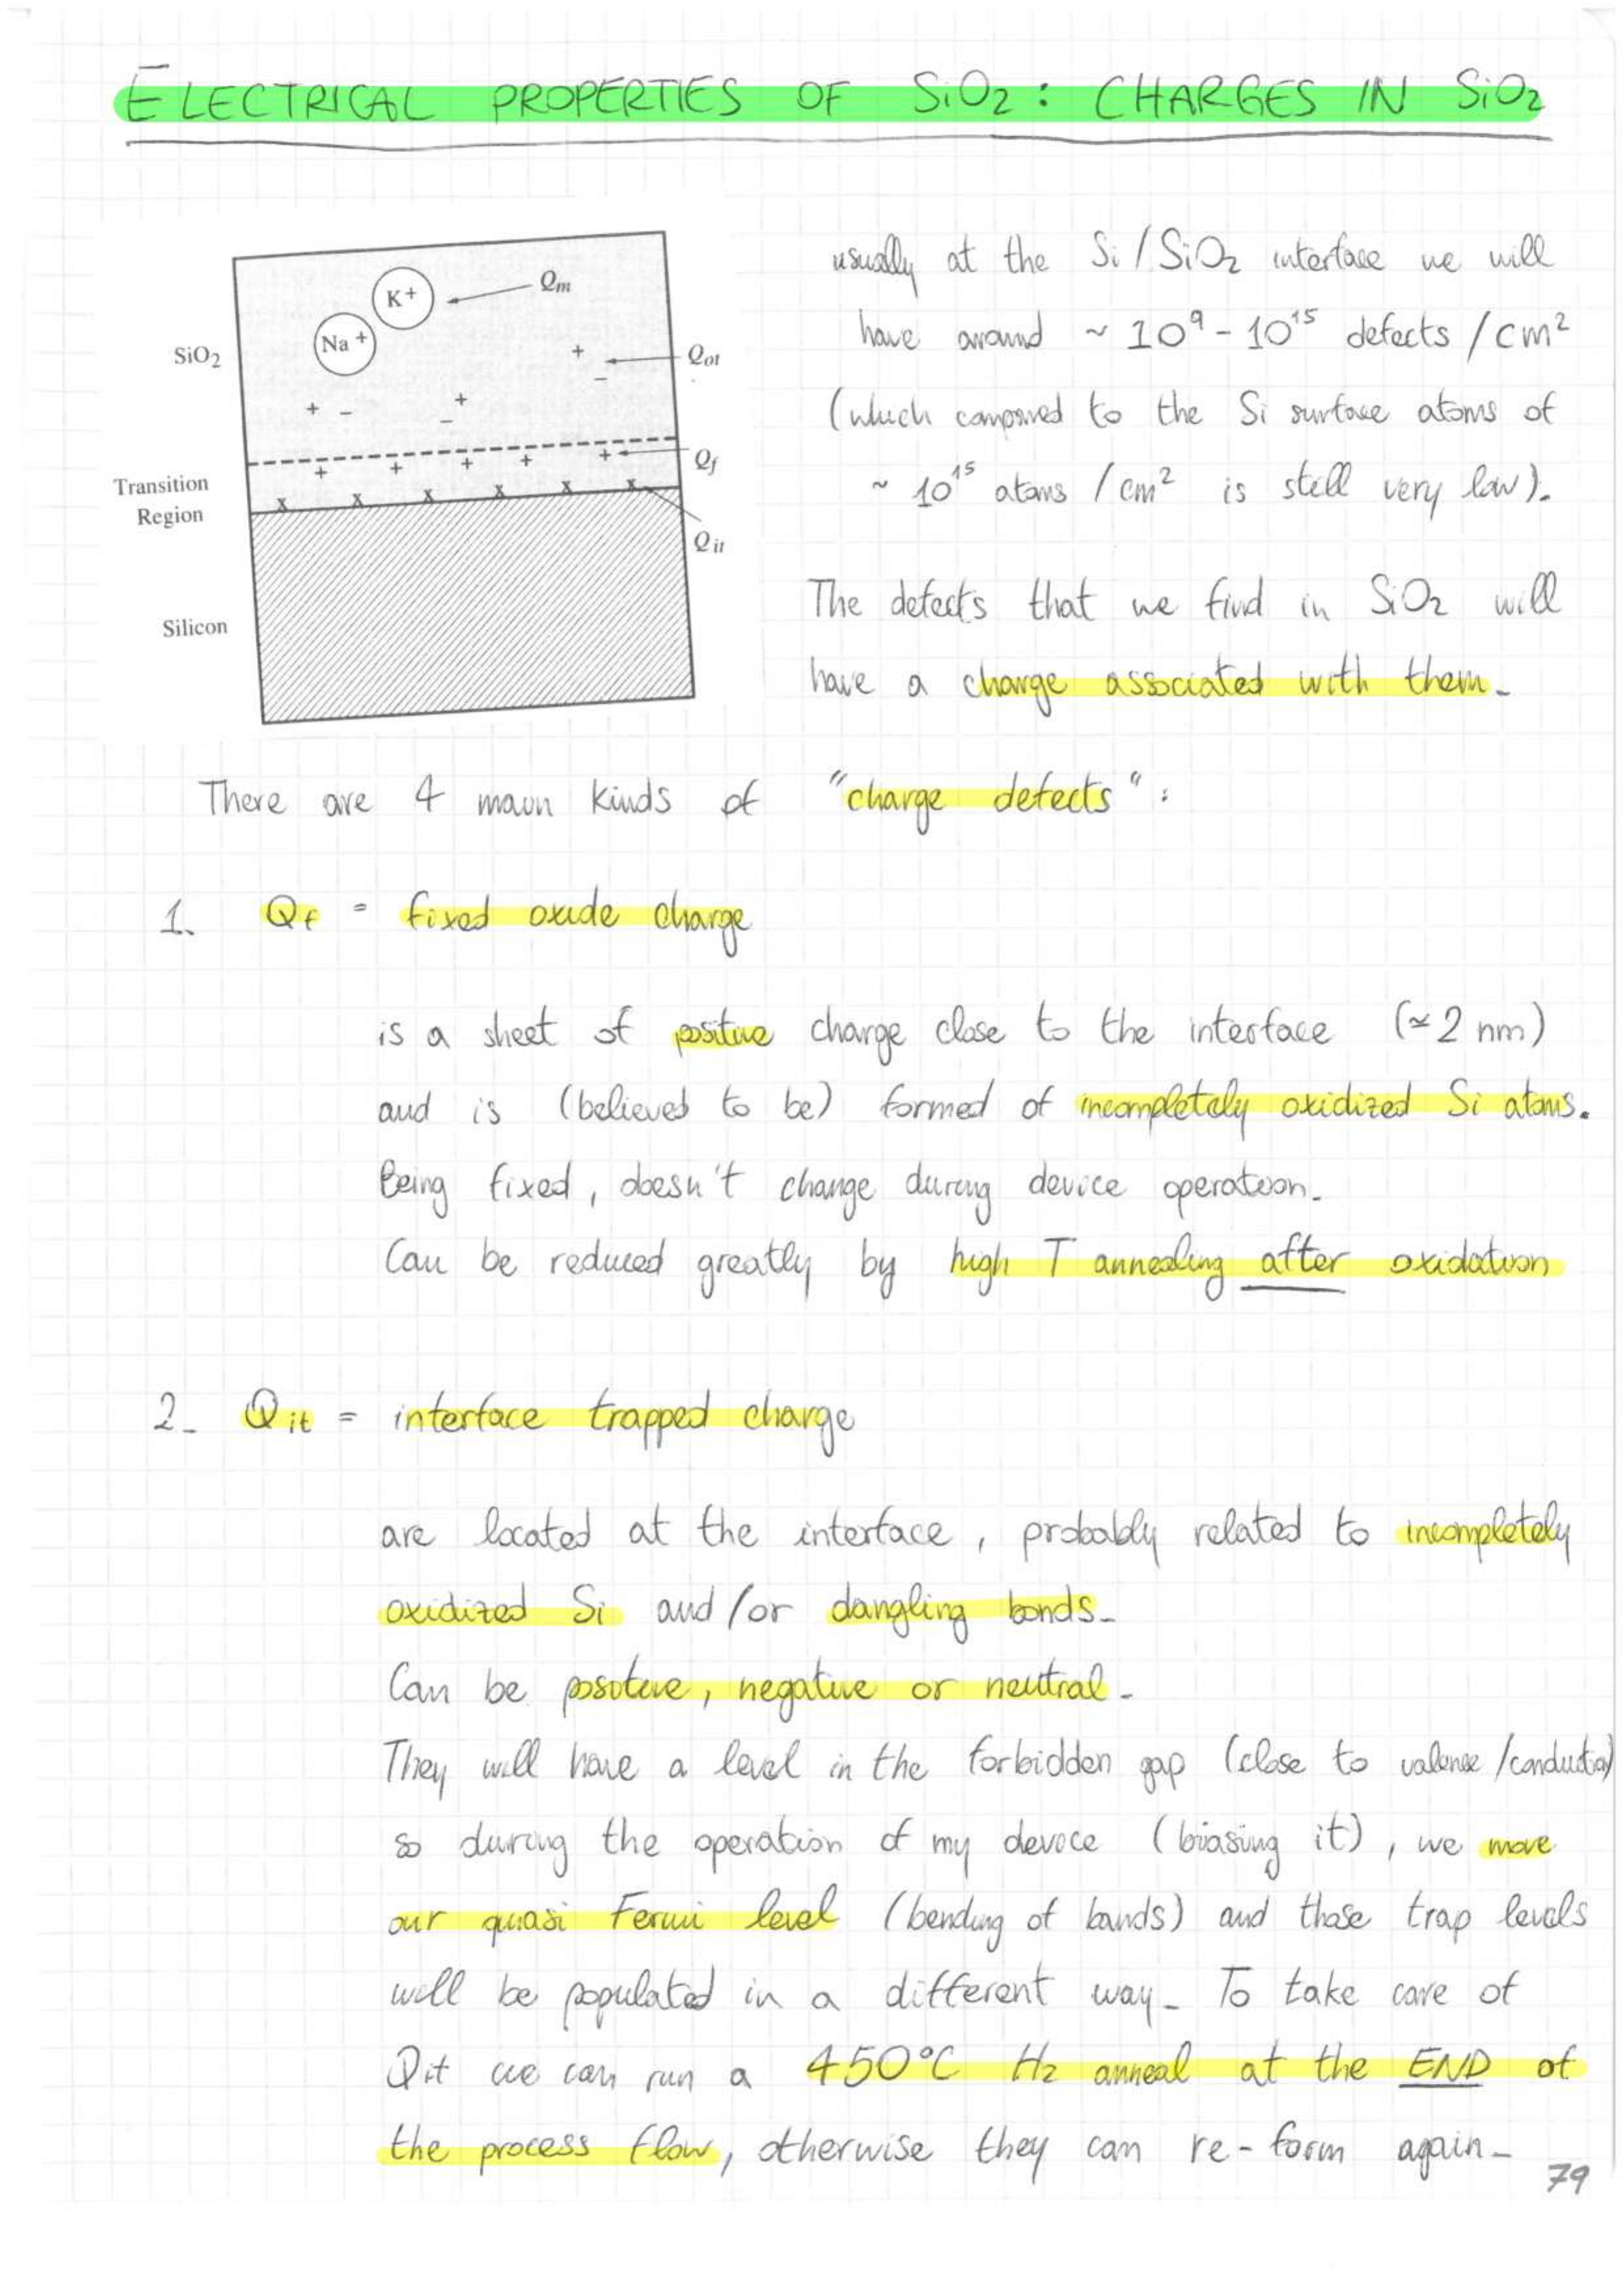 ELECTRICAL PROPERTIES OF SiO2 : CHARGES IN SiO2
K+
Qm
Na+
SiO2
Qot
Qf
Transition
Region
Qit
Silicon
usually at the Si / SiO2 interface we will
have around ~ 10⁹ - 10¹⁵ defects / cm²
(which compared to the Si surface atoms of
~ 10¹⁵ atoms / cm² is still very low).
The defects that we find in SiO2 will
have a charge associated with them.
There are 4 main kinds of "charge defects" :
1. Qf = fixed oxide charge
is a sheet of positive charge close to the interface (≃ 2 nm)
and is (believed to be) formed of incompletely oxidized Si atoms.
Being fixed, doesn't change during device operation.
Can be reduced greatly by high T annealing after oxidation
2. Qit = interface trapped charge
are located at the interface, probably related to incompletely
oxidized Si and/or dangling bonds.
Can be positive, negative or neutral.
They will have a level in the forbidden gap (close to valence/conduction)
so during the operation of my device (biasing it), we move
our quasi Fermi level (bending of bands) and those trap levels
will be populated in a different way. To take care of
Qit we can run a 450°C H2 anneal at the END of
the process flow, otherwise they can re-form again.
79